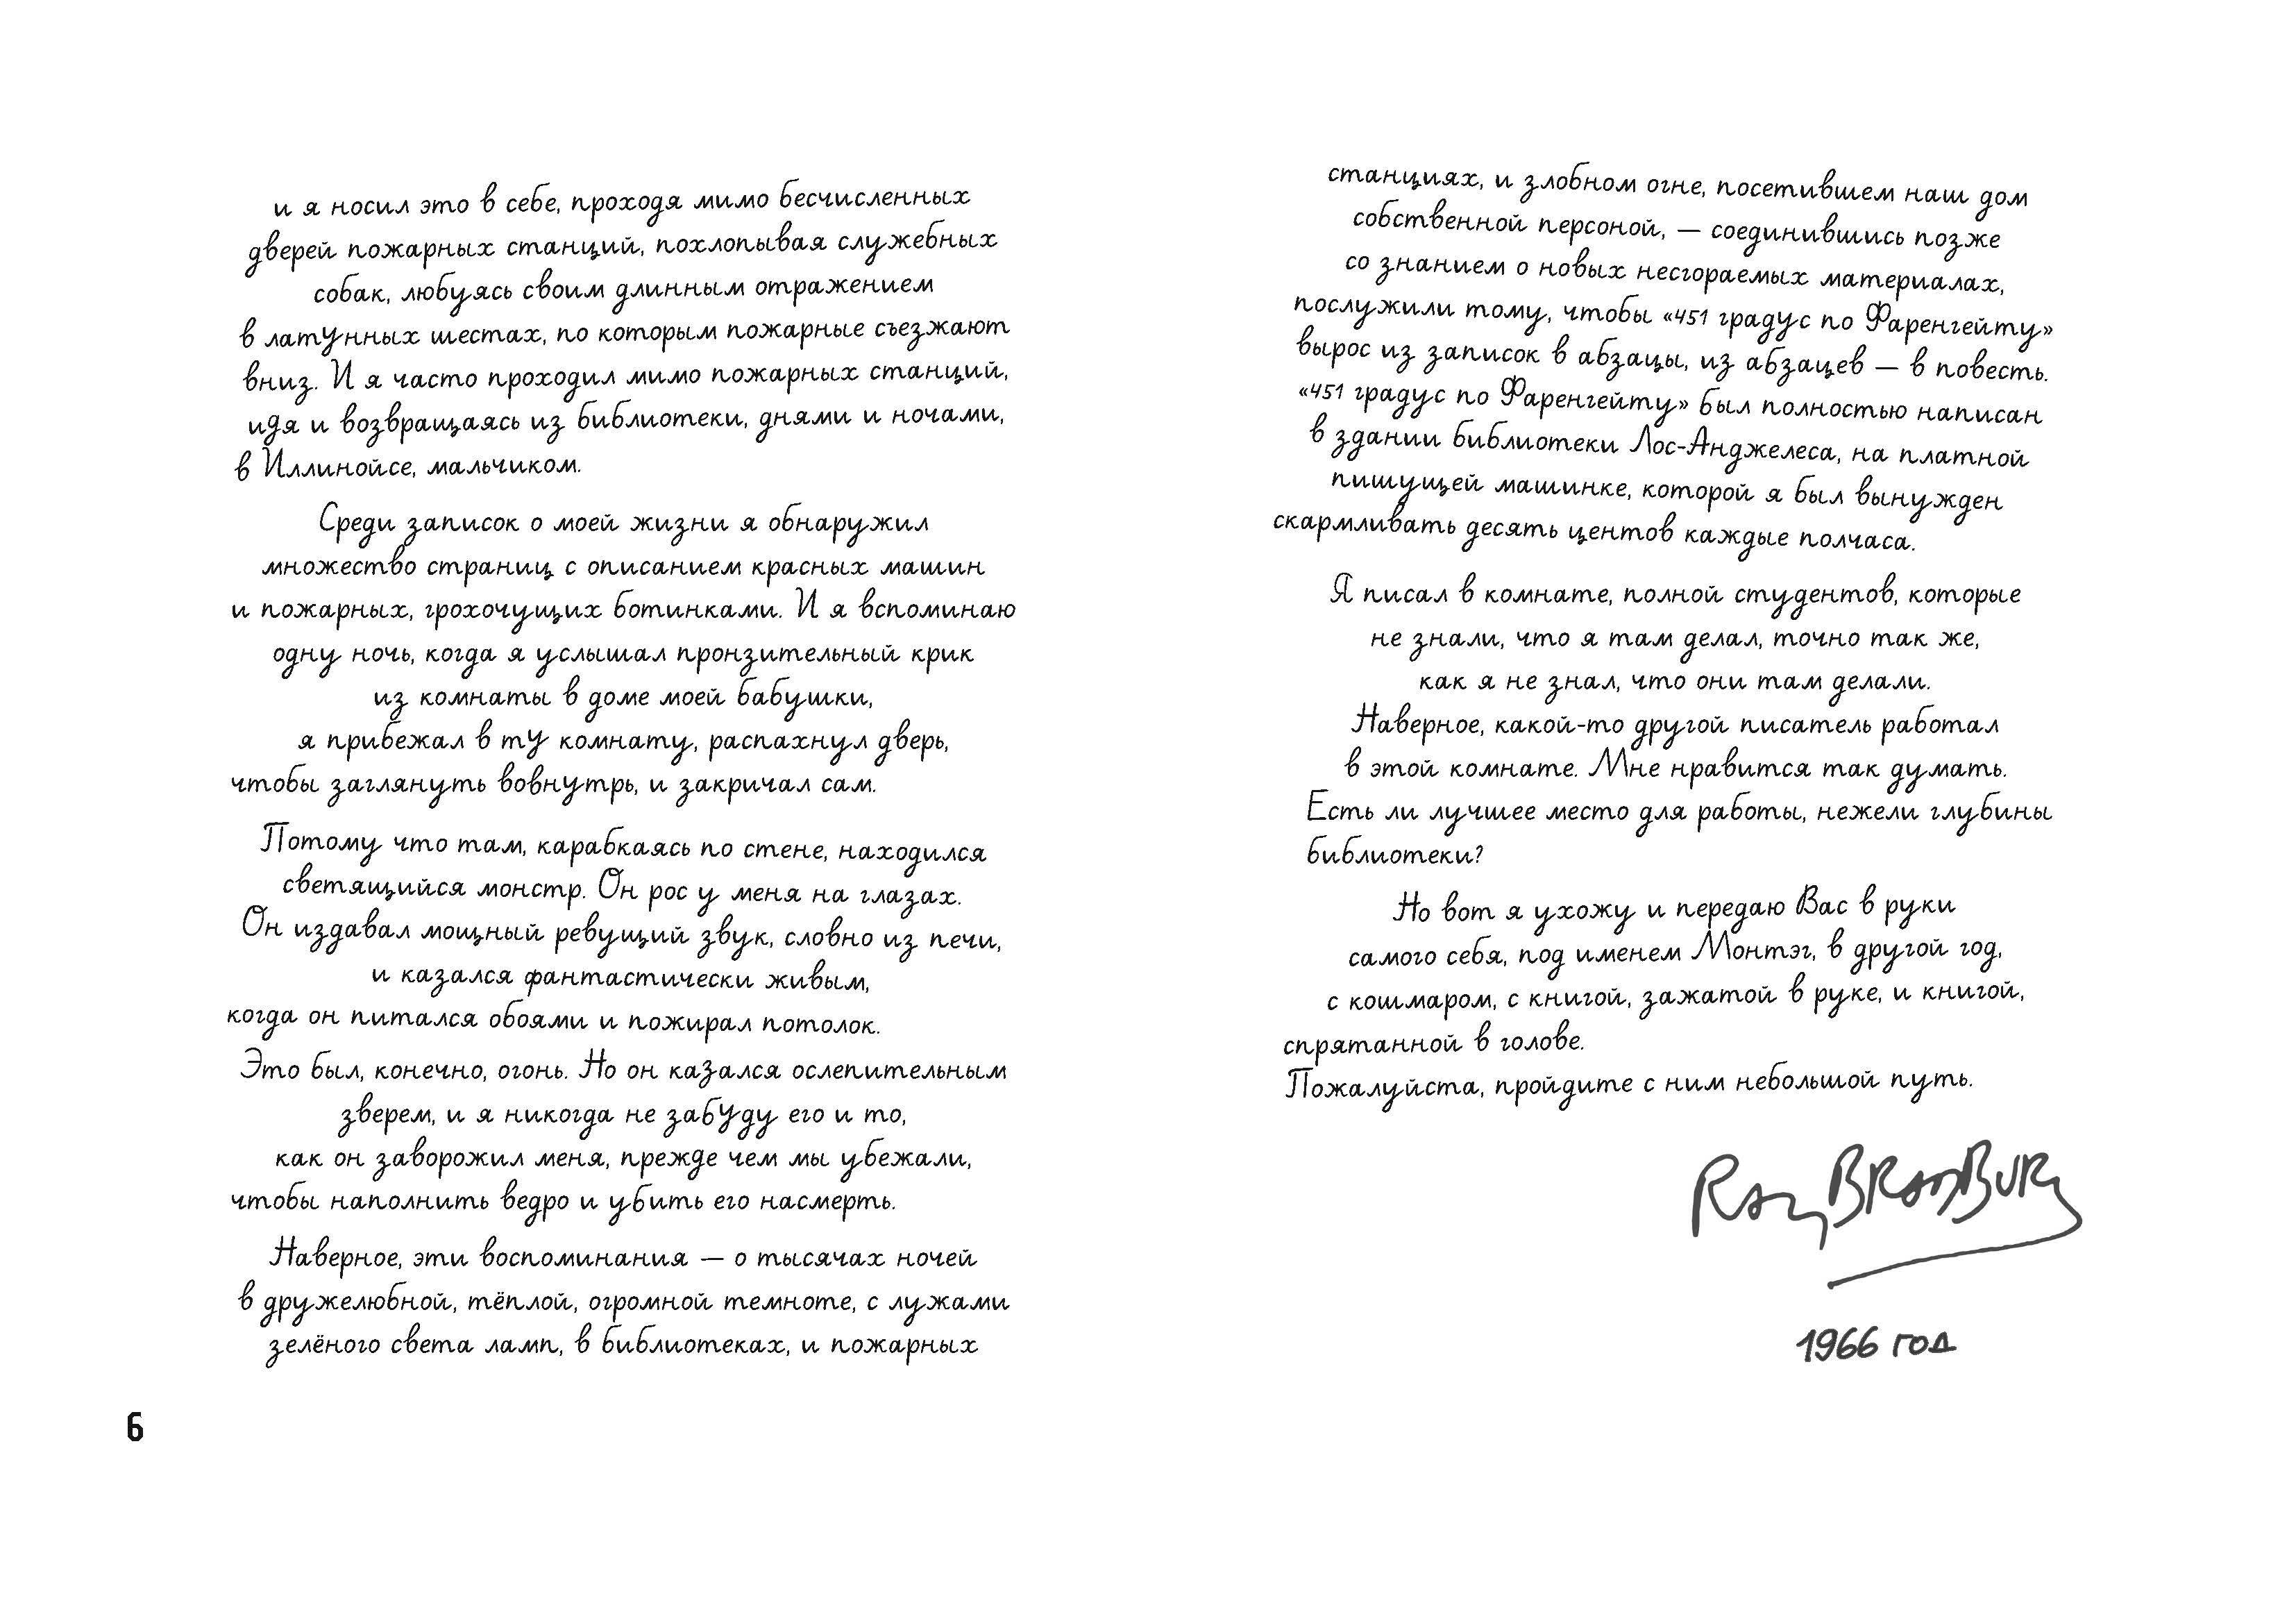 и я носил это в себе, проходя мимо бесчисленных
дверей пожарных станций, похлопывая служебных
собак, любуясь своим длинным отражением
в латунных шестах, по которым пожарные съезжают
вниз. И я часто проходил мимо пожарных станций,
идя и возвращаясь из библиотеки, днями и ночами,
в Иллинойсе, мальчиком.
Среди записок о моей жизни я обнаружил
множество страниц с описанием красных машин
и пожарных, грохочущих ботинками. И я вспоминаю
одну ночь, когда я услышал пронзительный крик
из комнаты в доме моей бабушки,
я прибежал в ту комнату, распахнул дверь,
чтобы заглянуть вовнутрь, и закричал сам.
Потому что там, карабкаясь по стене, находился
светящийся монстр. Он рос у меня на глазах.
Он издавал мощный ревущий звук, словно из печи,
и казался фантастически живым,
когда он питался обоями и пожирал потолок.
Это был, конечно, огонь. Но он казался ослепительным
зверем, и я никогда не забуду его и то,
как он заворожил меня, прежде чем мы убежали,
чтобы наполнить ведро и убить его насмерть.
Наверное, эти воспоминания — о тысячах ночей
в дружелюбной, тёплой, огромной темноте, с лужами
зелёного света ламп, в библиотеках, и пожарных
6
станциях, и злобном огне, посетившем наш дом
собственной персоной, — соединившись позже
со знанием о новых несгораемых материалах,
послужили тому, чтобы «451 градус по Фаренгейту»
вырос из записок в абзацы, из абзацев — в повесть.
«451 градус по Фаренгейту» был полностью написан
в здании библиотеки Лос-Анджелеса, на платной
пишущей машинке, которой я был вынужден
скармливать десять центов каждые полчаса.
Я писал в комнате, полной студентов, которые
не знали, что я там делал, точно так же,
как я не знал, что они там делали.
Наверное, какой-то другой писатель работал
в этой комнате. Мне нравится так думать.
Есть ли лучшее место для работы, нежели глубины
библиотеки?
Но вот я ухожу и передаю Вас в руки
самого себя, под именем Монтэг, в другой год,
с кошмаром, с книгой, зажатой в руке, и книгой,
спрятанной в голове.
Пожалуйста, пройдите с ним небольшой путь.
Ray Bradbury
1966 год